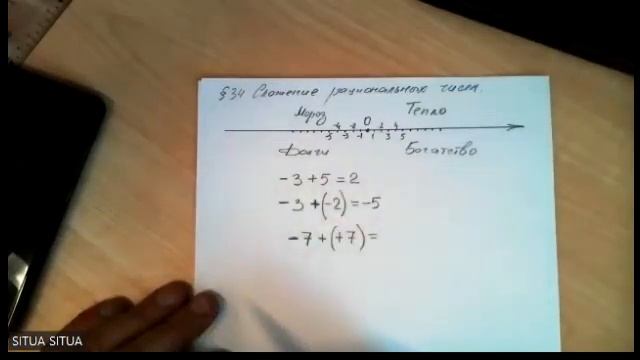 §34 Сложение рациональных чисел.
Мороз 0 Тепло
-5 -3 -1 1 3 5
Долги Богатство
-3+5=2
-3+(-2)=-5
-7+(+7)=
SITUA SITUA